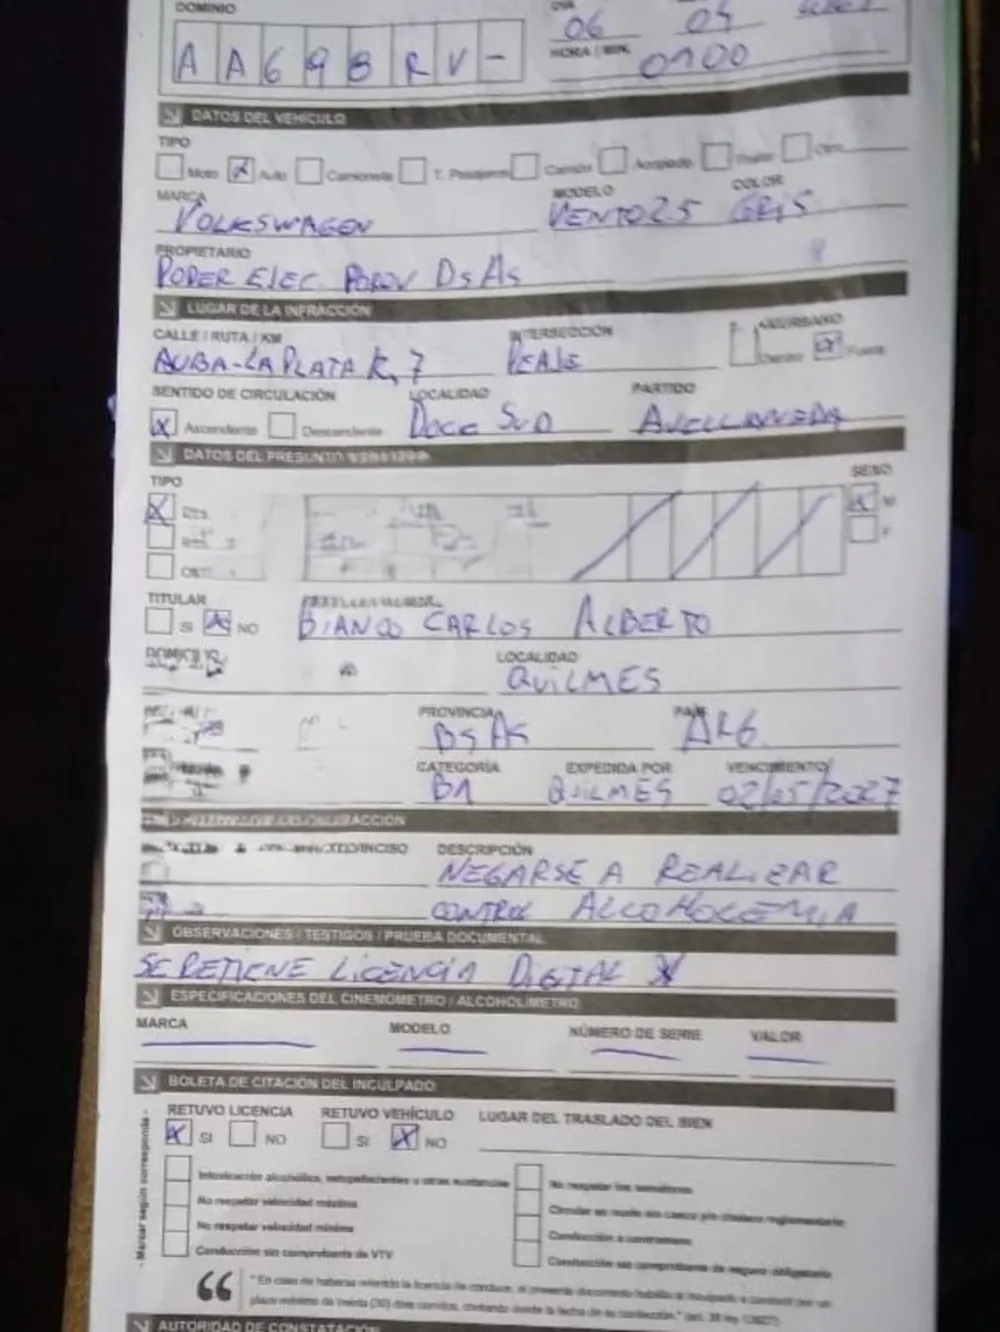 DOMINIO
AA698RV-
06 04
HORA / MIN. 0100
DATOS DEL VEHÍCULO
TIPO
Moto Auto Camioneta T. Pasajeros Camión Acoplado Otro
MARCA MODELO COLOR
VOLKSWAGEN VENTO 2.5 GRIS
PROPIETARIO
PODER EJEC DS AS
LUGAR DE LA INFRACCIÓN
CALLE / RUTA / KM INTERSECCIÓN
AUBA-LA PLATA K, 7 PEAJE Fuera
SENTIDO DE CIRCULACIÓN LOCALIDAD PARTIDO
Ascendente Descendente DOCK SUD AVELLANEDA
DATOS DEL PRESUNTO
TIPO SEXO
M
F
TITULAR
SI NO BIANCO CARLOS ALBERTO
DOMICILIO LOCALIDAD
QUILMES
PROVINCIA PAÍS
BS AS ARG
CATEGORÍA EXPEDIDA POR VENCIMIENTO
B1 QUILMES 02/05/2027
DESCRIPCIÓN
NEGARSE A REALIZAR
CONTROL ALCOHOLEMIA
OBSERVACIONES / TESTIGOS / PRUEBA DOCUMENTAL
SE RETIENE LICENCIA DIGITAL
ESPECIFICACIONES DEL CINEMÓMETRO / ALCOHOLÍMETRO
MARCA MODELO NÚMERO DE SERIE VALOR
BOLETA DE CITACIÓN DEL INCULPADO
RETUVO LICENCIA RETUVO VEHÍCULO LUGAR DEL TRASLADO DEL BIEN
SI NO SI NO
- Marcar según corresponda -
Intoxicación alcohólica, estupefacientes u otras sustancias
No respetar velocidad máxima
No respetar velocidad mínima
Conducción sin comprobante de VTV
No respetar los semáforos
Circular en moto sin casco y/o chaleco reglamentario
Conducción a contramano
Conducción sin comprobante de seguro obligatorio
" En caso de haberse retenido la licencia de conducir, el presente documento habilita al inculpado a conducir por un
plazo máximo de treinta (30) días corridos, contando desde la fecha de su confección." (art. 38 ley 13927)
AUTORIDAD DE CONSTATACIÓN